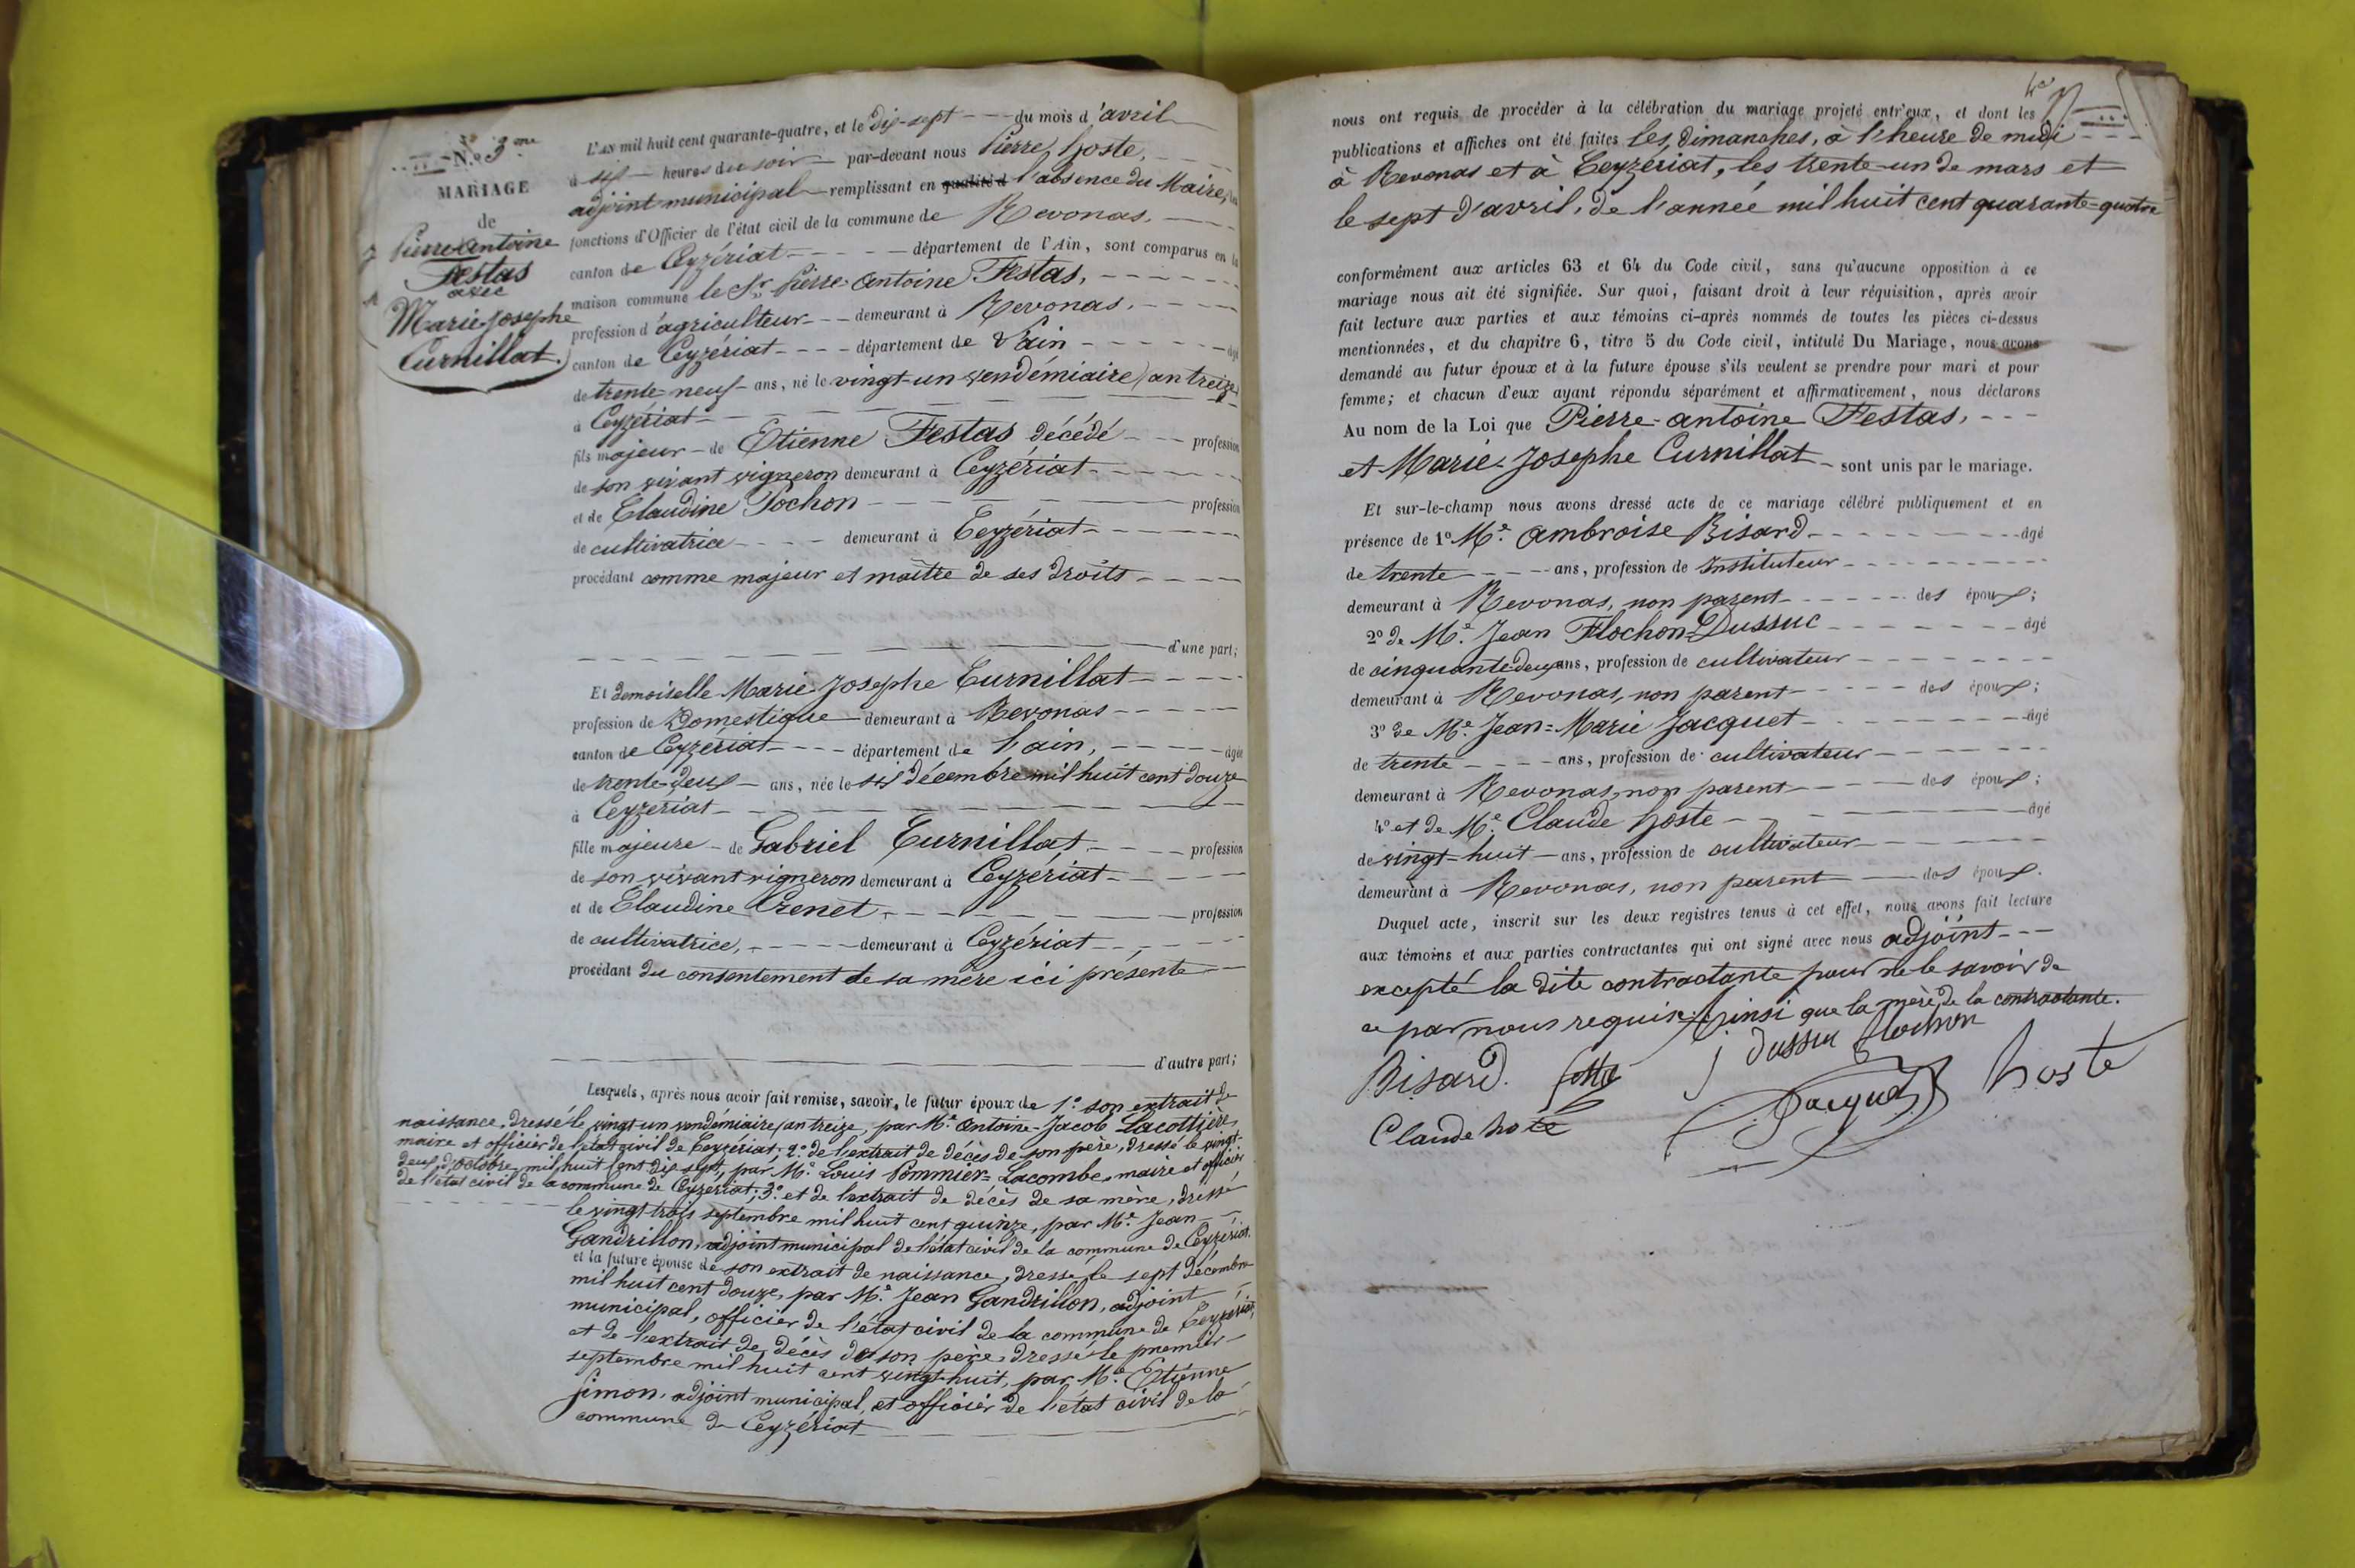 N.o 3.me
MARIAGE
de
Pierre-Antoine
Festas
avec
Marie-Josephe
Curnillat.
L'AN mil huit cent quarante-quatre, et le dix-sept du mois d'avril
à six heures du soir par-devant nous Pierre hoste,
adjoint municipal remplissant en qualité d l'absence du Maire, les
fonctions d'Officier de l'état civil de la commune de Revonas,
canton de Ceyzériat département de l'Ain, sont comparus en la
maison commune le Sr. Pierre-Antoine Festas,
profession d'agriculteur demeurant à Revonas,
canton de Ceyzériat département de l'ain âgé
de trente-neuf ans, né le vingt-un vendémiaire (an treize)
à Ceyzériat
fils majeur de Etienne Festas décédé profession
de son vivant vigneron demeurant à Ceyzériat
et de Claudine Pochon profession
de cultivatrice demeurant à Ceyzériat
procédant comme majeur et maître de ses droits
d'une part;
Et demoiselle Marie-Josephe Curnillat
profession de Domestique demeurant à Revonas
canton de Ceyzériat département de l'ain, âgée
de trente-deux ans, née le six décembre mil huit cent douze
à Ceyzériat
fille majeure de Gabriel Curnillat, profession
de son vivant vigneron demeurant à Ceyzériat
et de Claudine Crenet, profession
de cultivatrice, demeurant à Ceyzériat
procédant du consentement de sa mère ici présente
d'autre part;
Lesquels, après nous avoir fait remise, savoir, le futur époux de 1.o son extrait de
naissance, dressé le vingt-un vendémiaire (an treize, par Mr. Antoine-Jacob Lacottière,
maire et officier de l'état civil de Ceyzériat; 2.o de l'extrait de décès de son père, dressé le vingt-
deux d'octobre mil huit cent dix sept, par Mr. Louis Pommier-Lacombe, maire et officier
de l'état civil de la commune de Ceyzériat; 3.o et de l'extrait de décès de sa mère, dressé
le vingt-trois septembre mil huit cent quinze, par Mr. Jean
Gandrillon, adjoint municipal de l'état civil de la commune de Ceyzériat.
et la future épouse de son extrait de naissance, dressé le sept décembre
mil huit cent douze, par Mr. Jean Gandrillon, adjoint
municipal, officier de l'état civil de la commune de Ceyzériat,
et de l'extrait de décès de son père, dressé le premier
septembre mil huit cent vingt-huit, par Mr. Etienne
Simon, adjoint municipal, et officier de l'état civil de la
commune de Ceyzériat
nous ont requis de procéder à la célébration du mariage projeté entr'eux, et dont les
publications et affiches ont été faites les dimanches, à l'heure de midi
à Revonas et à Ceyzériat, les trente-un de mars et
le sept d'avril, de l'année mil huit cent quarante-quatre
conformément aux articles 63 et 64 du Code civil, sans qu'aucune opposition à ce
mariage nous ait été signifiée. Sur quoi, faisant droit à leur réquisition, après avoir
fait lecture aux parties et aux témoins ci-après nommés de toutes les pièces ci-dessus
mentionnées, et du chapitre 6, titre 5 du Code civil, intitulé Du Mariage, nous avons
demandé au futur époux et à la future épouse s'ils veulent se prendre pour mari et pour
femme; et chacun d'eux ayant répondu séparément et affirmativement, nous déclarons
Au nom de la Loi que Pierre-Antoine Festas,
et Marie-Josephe Curnillat sont unis par le mariage.
Et sur-le-champ nous avons dressé acte de ce mariage célébré publiquement et en
présence de 1o Mr. Ambroise Bisard âgé
de trente ans, profession de Instituteur
demeurant à Revonas, non parent des époux;
2o de Mr. Jean Flochon=Dussuc âgé
de cinquante-deux ans, profession de cultivateur
demeurant à Revonas, non parent des époux;
3o de Mr. Jean=Marie Jacquet âgé
de trente ans, profession de cultivateur
demeurant à Revonas, non parent des époux;
4o et de Mr. Claude hoste âgé
de vingt-huit ans, profession de cultivateur
demeurant à Revonas, non parent des époux.
Duquel acte, inscrit sur les deux registres tenus à cet effet, nous avons fait lecture
aux témoins et aux parties contractantes qui ont signé avec nous adjoint
excepté la dite contractante pour ne le savoir de
ce par nous requise. Ainsi que la mère de la contractante.
J dussuc flochon
Bisard. hoste
Claude hoste Jacquet